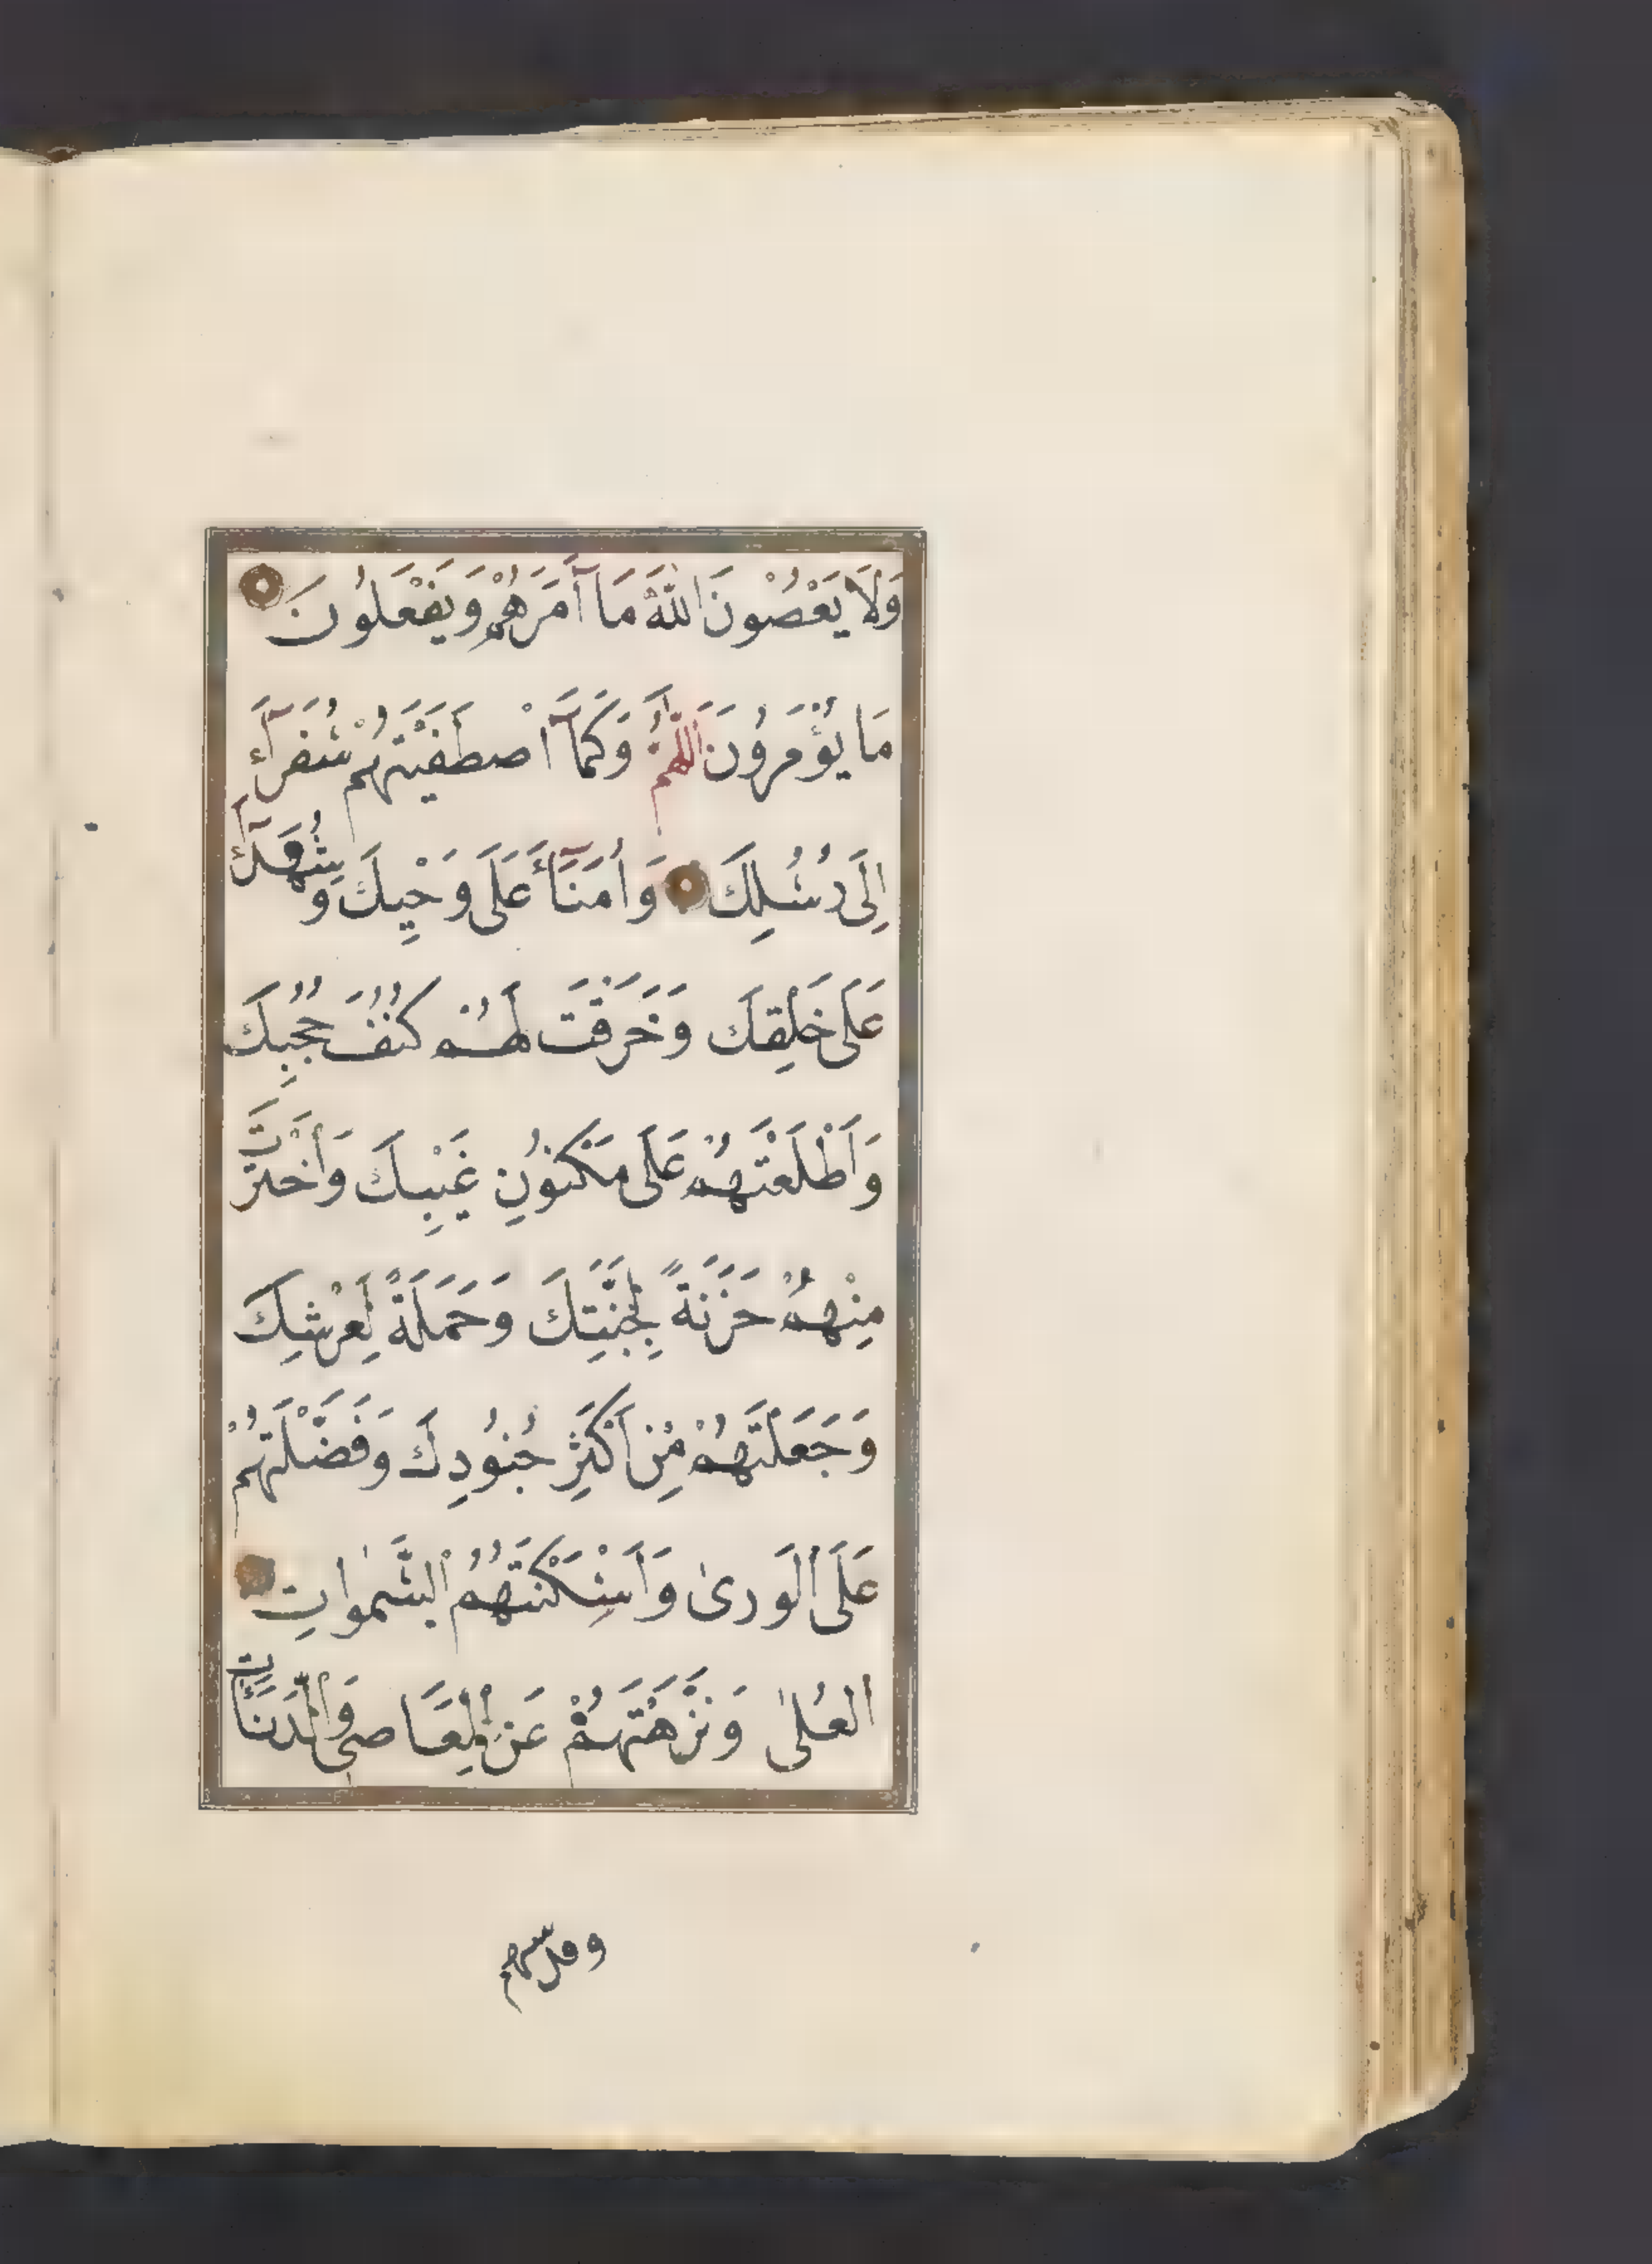 وَلَا يَعْصُونَ اللهَ مَا آمَرَهُمْ وَيَفْعَلُونَ
مَا يُؤْمَرُونَ اَللّٰهُمَّ وَكَمَآ اصْطَفَيْتَهُمْ سُفَرَآءَ
اِلَى رُسُلِكَ وَاُمَنَآءَ عَلَى وَحْيِكَ وَشُهَدَآءَ
عَلَى خَلْقِكَ وَخَرَقْتَ لَهُمْ كُنُفَ حُجُبِكَ
وَاَطْلَعْتَهُمْ عَلَى مَكْنُونِ غَيْبِكَ وَاَخْتَرْتَ
مِنْهُمْ خَزَنَةً لِجَنَّتِكَ وَحَمَلَةً لِعَرْشِكَ
وَجَعَلْتَهُمْ مِنْ اَكْثَرِ جُنُودِكَ وَفَضَّلْتَهُمْ
عَلَى الْوَرىٰ وَاَسْكَنْتَهُمُ السَّمٰوَاتِ
الْعُلىٰ وَنَزَّهْتَهُمْ عَنِ الْمَعَاصِى وَالدَّنَآئَاتِ
وقدّستهم